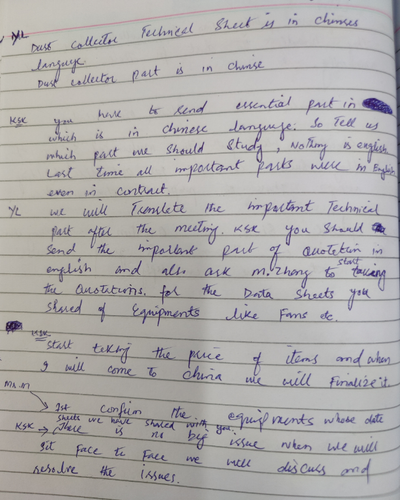 YL Dust collector Technical Sheet is in chinses
languge
Dust collector part is in chinse
KSK you have to send essential part in
which is in chinese language. So Tell us
which part we should study, Nothing is english
Last time all important parts were in English
even in contract.
YL we will Translate the important Technical
part after the meeting. KSK you should
send the important part of Quotetion in
english and also ask m.zhong to start taking
the Quotetions. for the Data Sheets you
shared of Equipments like Fans etc.
KSK
Start taking the price of items and when
I will come to china we will Finalize it.
1st confirm the equipments whose data
sheets we have shared with you.
KSK → There is no big issue when we will
sit Face to Face we will discuss and
resolve the issues.